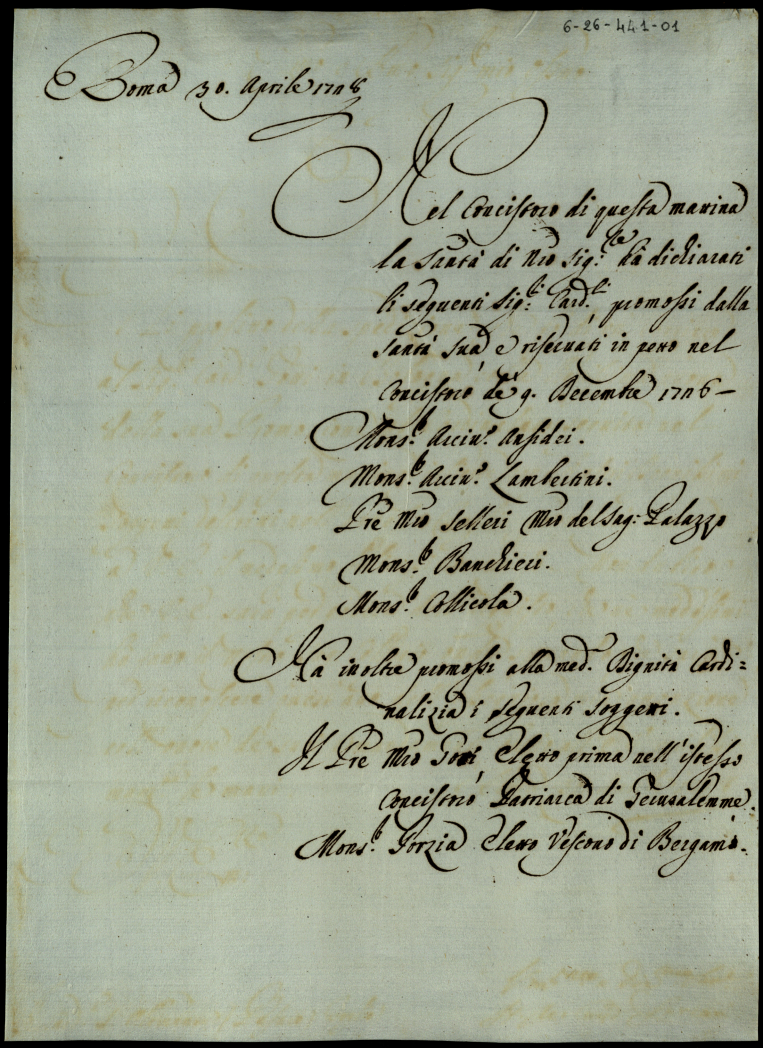 6-26-441-01
Roma 30. Aprile 1728
Nel Concistoro di questa mattina
la Santà di Nro Sig.re hà dichiarati
li seguenti Sig.ri Card.li promossi dalla
Santà Sua e riservati in petto nel
Concistoro de' 9. Decembre 1726 –
Mons.r Arciv.o Ansidei.
Mons.r Arciv.o Lambertini.
Pre Mro Selleri Mro del Sag: Palazzo
Mons.r Banchieri.
Mons.r Collicola.
Hà inoltre promossi alla med.a Dignità Cardi=
nalizia i seguenti soggetti.
Il Pre Mro Gotti Eletto prima nell'istesso
Concistoro Patriarca di Gerusalemme.
Mons.r Porzia Eletto Vescovo di Bergamo.